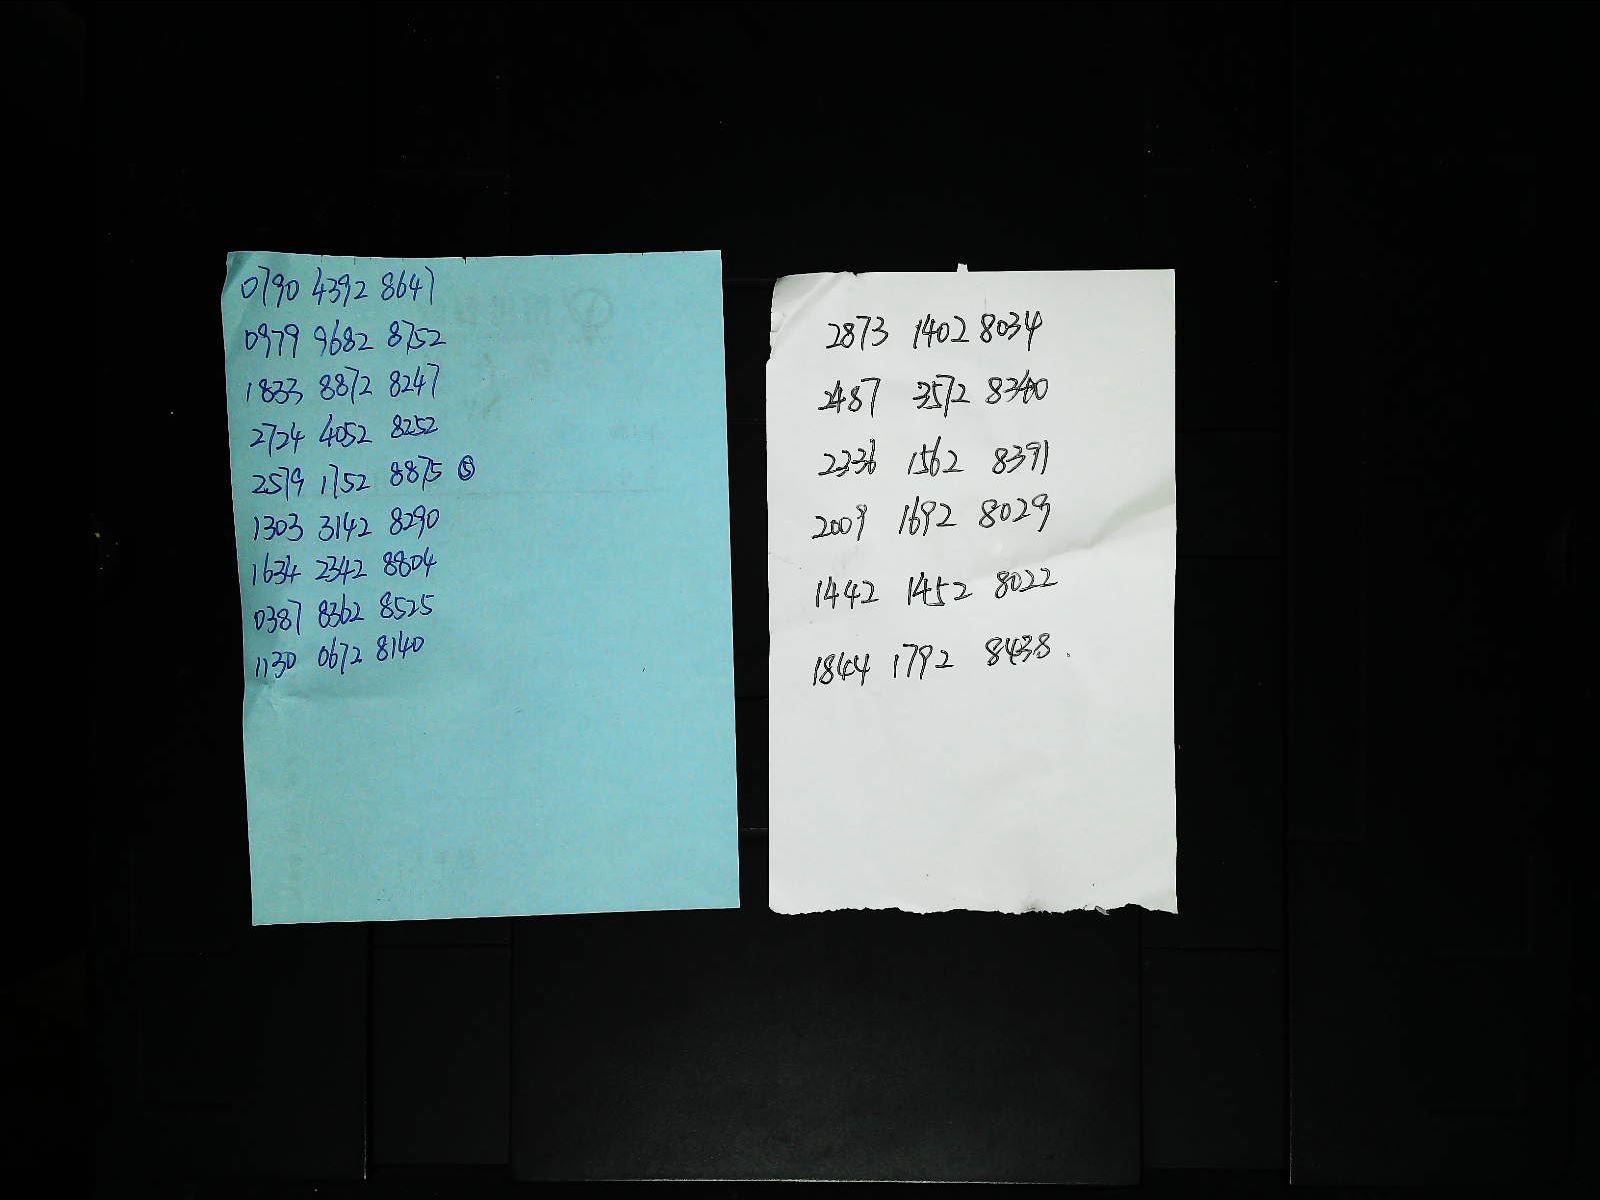 0790 4392 8647
0979 9682 8752
1833 8872 8247
2724 4052 8252
2579 1752 8875 ⑤
1303 3142 8290
1634 2342 8804
0387 8362 8525
1130 0672 8140
2873 1402 8034
2487 3572 8340
2336 1562 8391
2009 1692 8029
1442 1452 8022
1844 1792 8438.